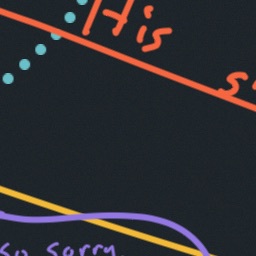 His
so sorry